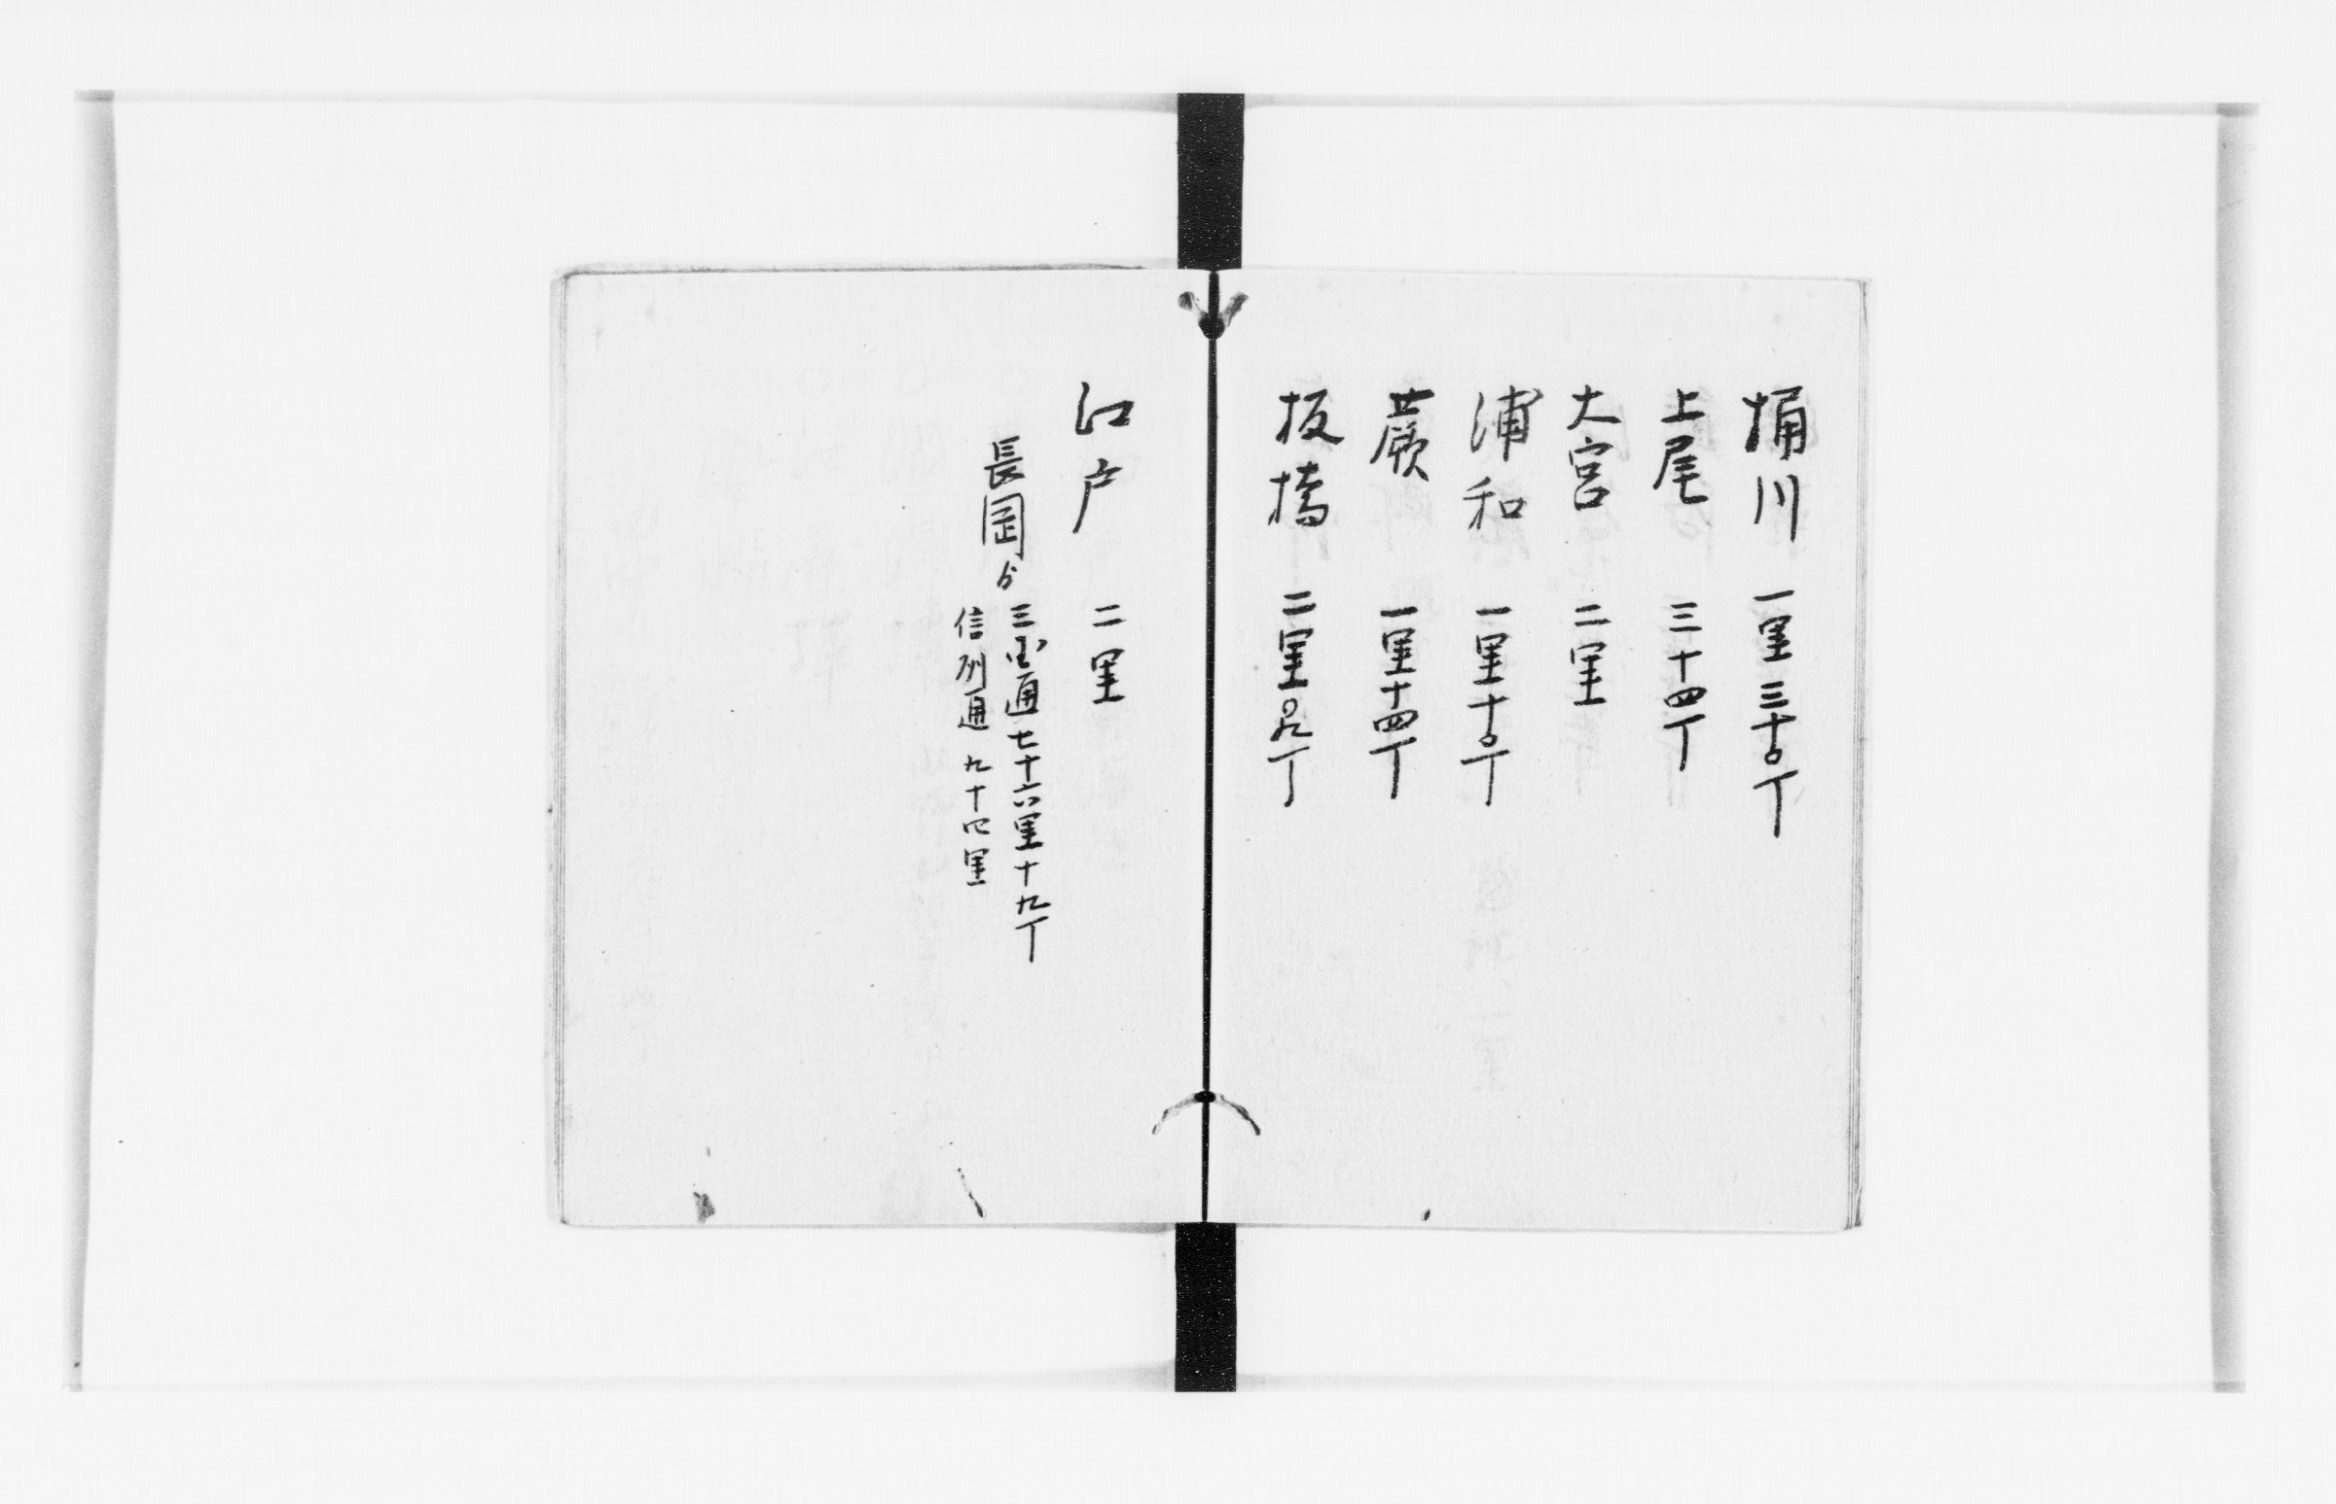 桶川 一里三十〇丁
上尾 三十四丁
大宮 二里
浦和 一里十〇丁
蕨 一里十四丁
板橋 二里〇九丁
江戸 二里
長岡ゟ
三国通七十六里十九丁
信州通 九十四里